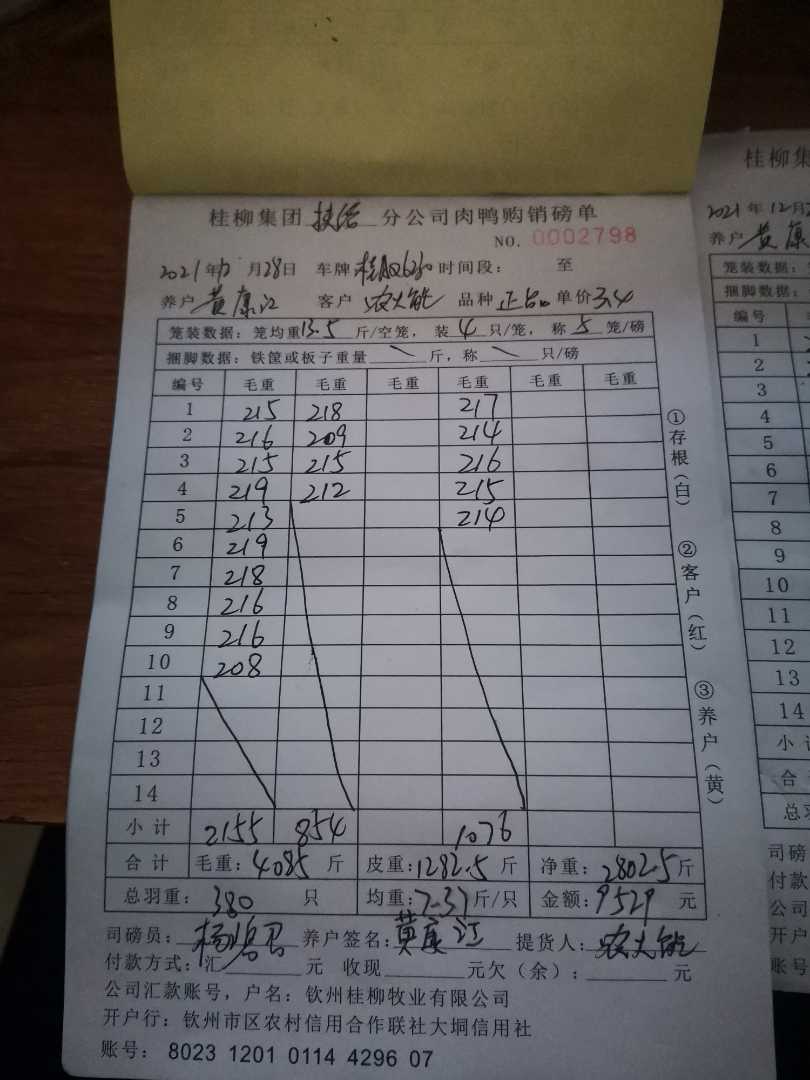 桂柳集团 扶绥 分公司肉鸭购销磅单
NO. 0002798
2021年12月28日 车牌 时间段： 至
养户 黄康江 客户 农大能 品种 正品 单价 3.4
笼装数据：笼均重13.5斤/空笼，装4只/笼，称5笼/磅
捆脚数据：铁筐或板子重量 \ 斤，称 \ 只/磅
编号 毛重 毛重 毛重 毛重 毛重 毛重
1 215 218 217
2 216 209 214
3 215 215 216
4 219 212 215
5 213 214
6 219
7 218
8 216
9 216
10 208
11
12
13
14
小计 2155 854 1076
合计 毛重：4085斤 皮重：1282.5斤 净重：2802.5斤
总羽重：380只 均重：7.37斤/只 金额：9529元
司磅员： 养户签名：黄康江 提货人：农大能
付款方式：汇 元 收现 元欠（余）： 元
公司汇款账号，户名：钦州桂柳牧业有限公司
开户行：钦州市区农村信用合作联社大垌信用社
账号： 8023 1201 0114 4296 07
①存根（白） ②客户（红） ③养户（黄）
桂柳集
2021年12月2
养户 黄康
笼装数据：
捆脚数据：
编号
1
2
3
4
5
6
7
8
9
10
11
12
13
14
小计
合
总羽
司磅
付款
公司
开户
账号